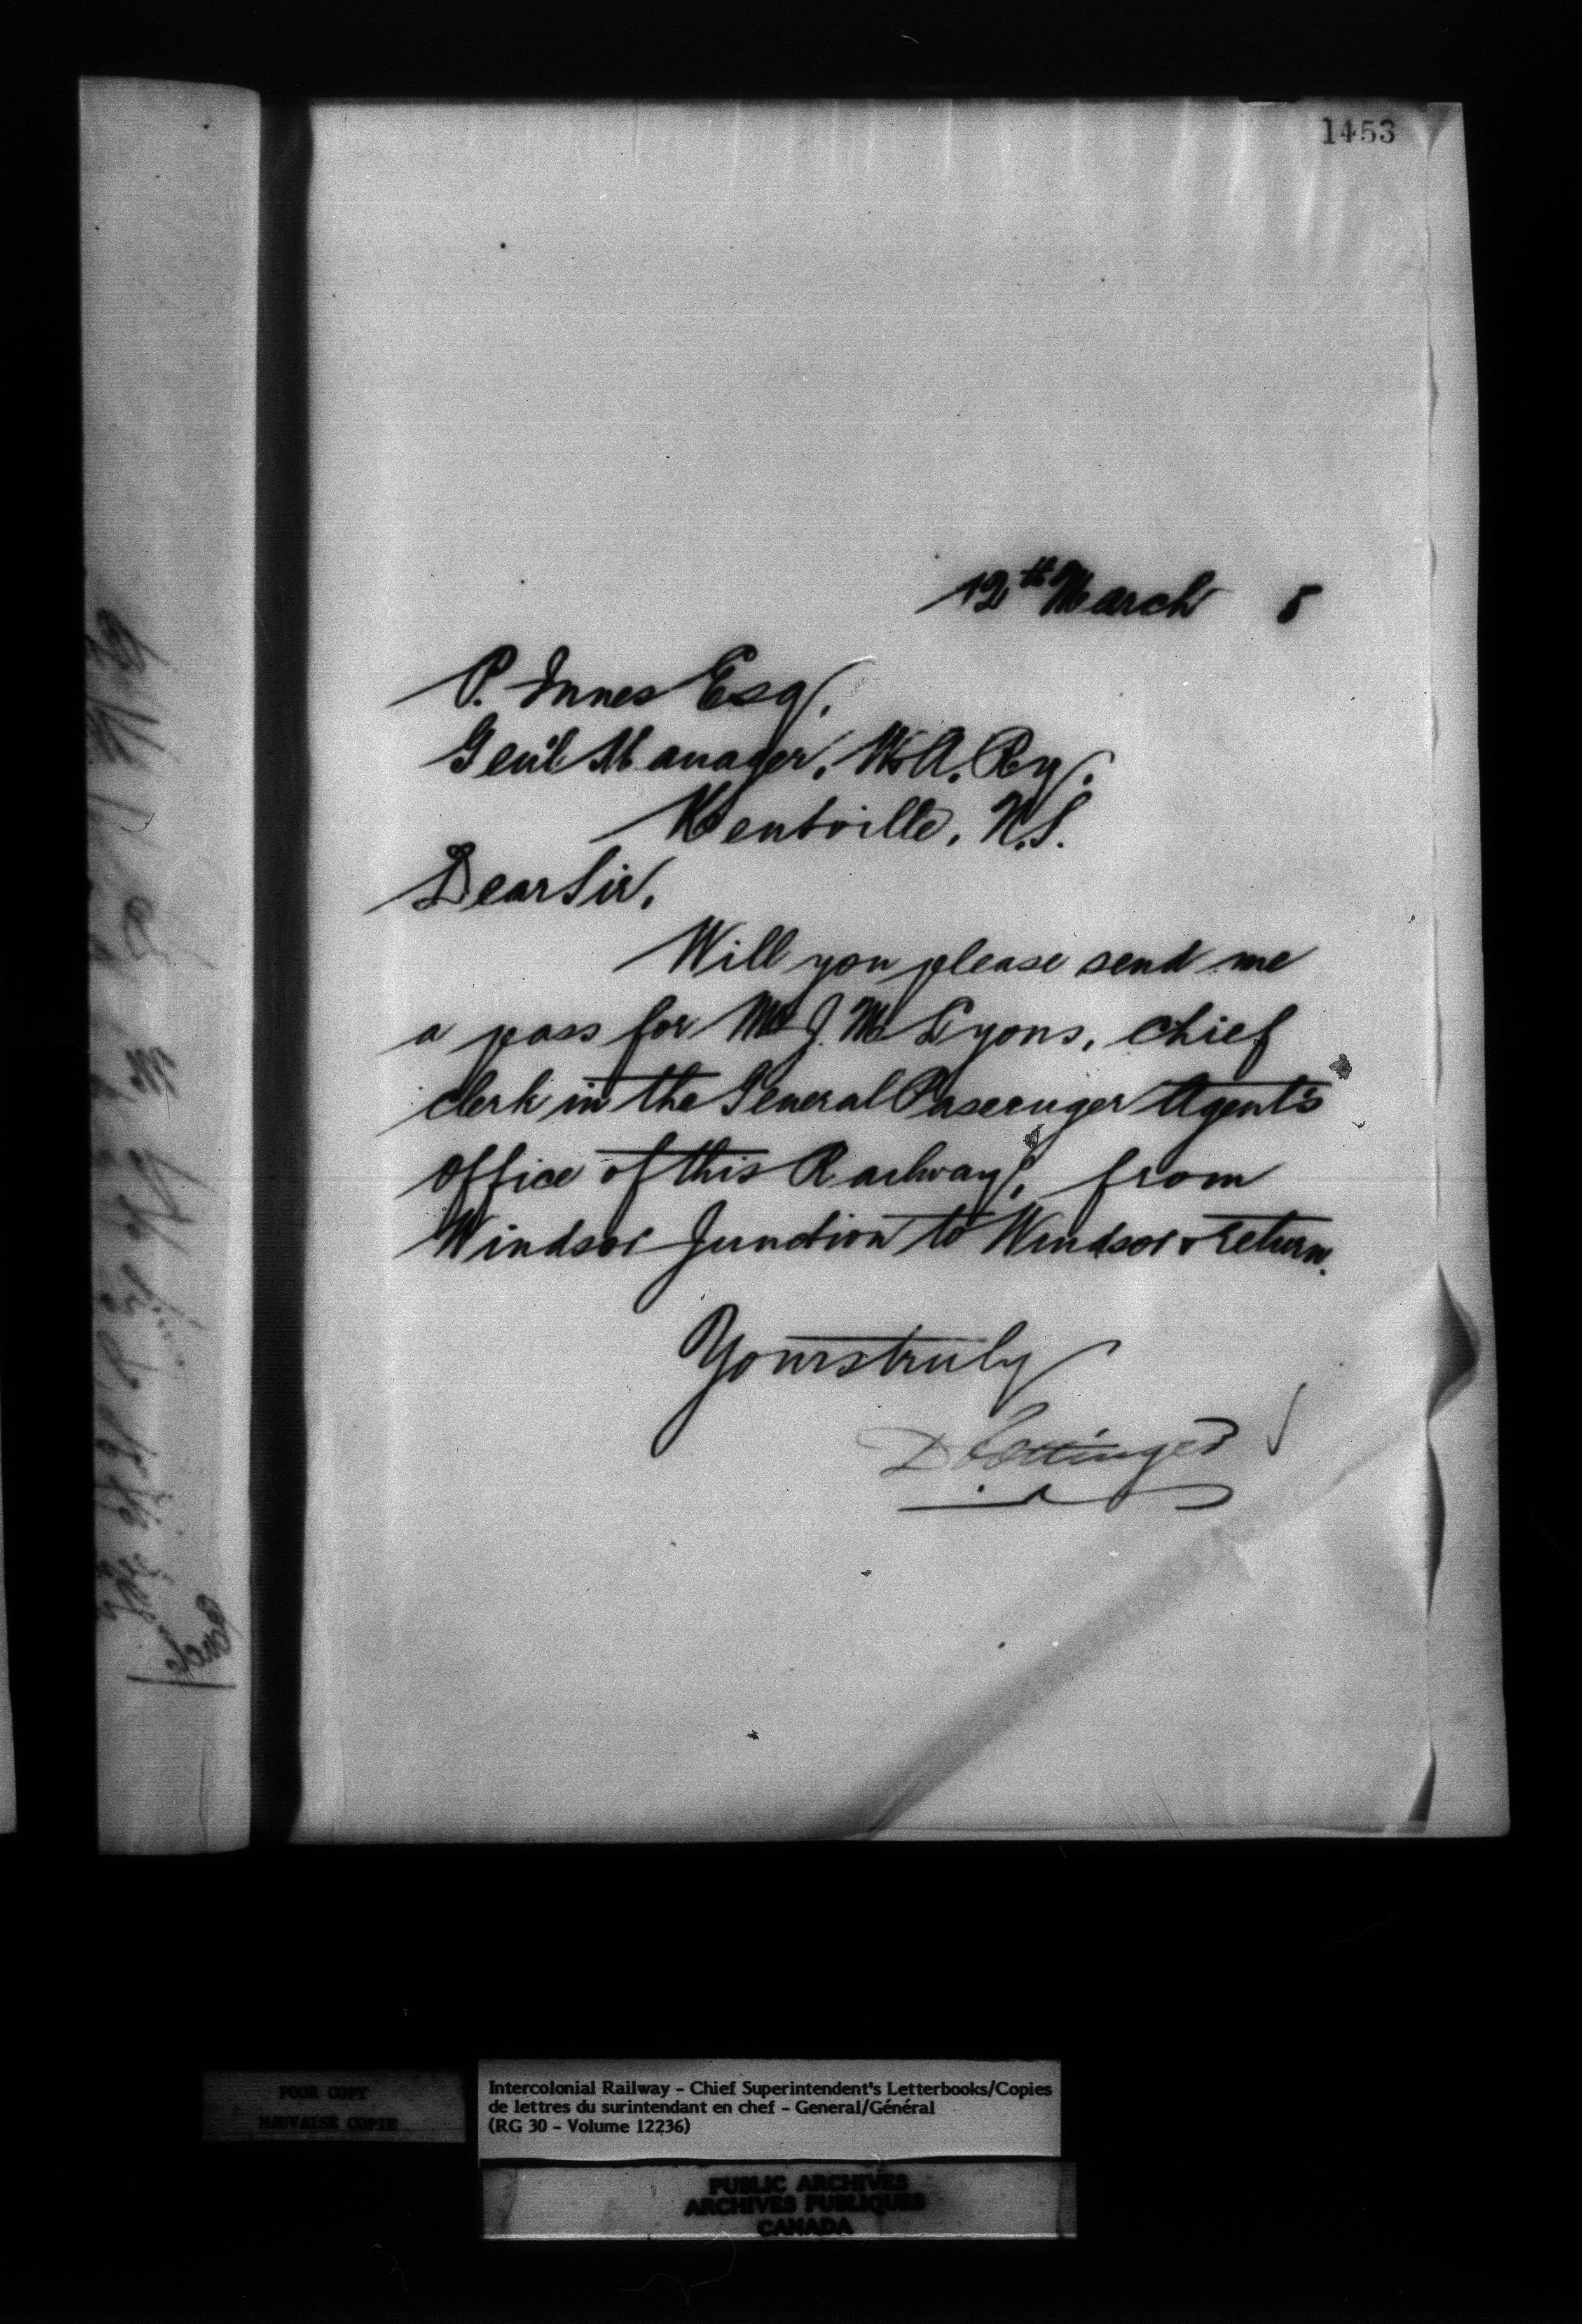 1453
12th March 8
P. Innes Esq.
Gen'l Manager, W.A. Ry.
Kentville, N.S.
Dear Sir,
Will you please send me
a pass for Mr J. M. Lyons, chief
clerk in the General Passenger Agent's
office of this Railway, from
Windsor Junction to Windsor & return.
Yours truly
D Pottinger
POOR COPY
MAUVAISE COPIE
Intercolonial Railway - Chief Superintendent's Letterbooks/Copies
de lettres du surintendant en chef - General/Général
(RG 30 - Volume 12236)
PUBLIC ARCHIVES
ARCHIVES PUBLIQUES
CANADA